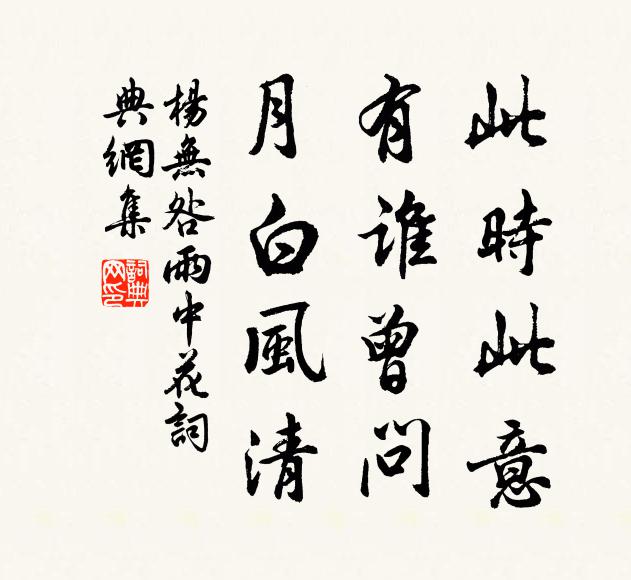 此時此意
有誰曾問
月白風清
楊無咎雨中花詞
典網集
詞典網印